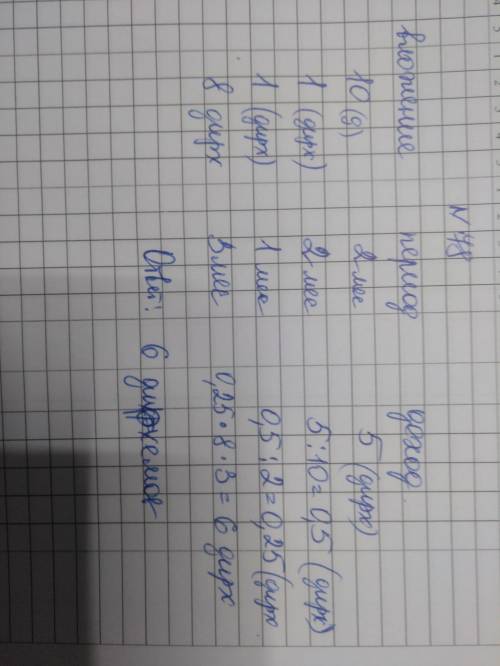 N 48
вложение период доход
10 (д) 2 мес 5 (дирх)
1 (дирх) 2 мес 5:10=0,5 (дирх)
1 (дирх) 1 мес 0,5:2=0,25 (дирх
8 дирх 3 мес 0,25·8·3=6 дирх
Ответ: 6 дирхемов